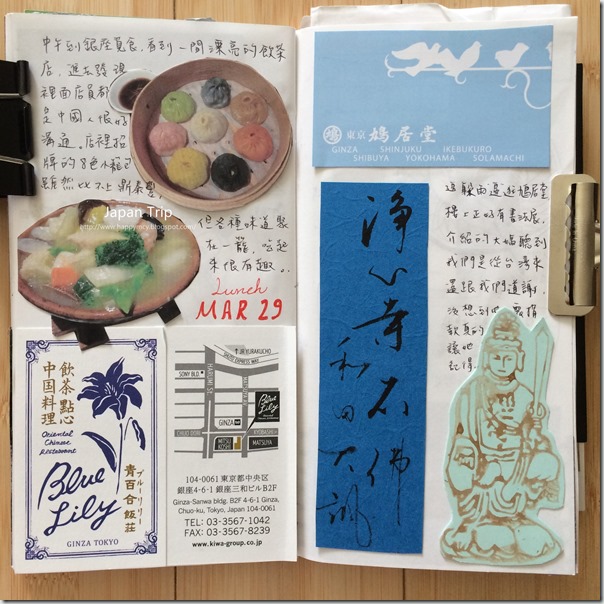 中午到銀座覓食,看到一間漂亮的飲茶
店,進去發現
裡面店員都
是中國人很好
溝通。店裡招
牌的8色小籠包
雖然比不上鼎泰豐,
Japan Trip
但各種味道聚
在一籠,吃起
來很有趣。
Lunch
MAR 29
飲茶點心
中国料理
Oriental
Chinese
Restaurant
Blue Lily
ブルーリリー
青百合飯荘
GINZA TOKYO
SONY BLD.
Blue Lily
GINZA
MITSU
KOSHI
MATSUYA
104-0061 東京都中央区
銀座4-6-1 銀座三和ビルB2F
Ginza-Sanwa bldg. B2F 4-6-1 Ginza,
Chuo-ku, Tokyo, Japan 104-0061
TEL: 03-3567-1042
FAX: 03-3567-8239
www.kiwa-group.co.jp
東京 鳩居堂
GINZA SHINJUKU IKEBUKURO
SHIBUYA YOKOHAMA SOLAMACHI
淨心寺石佛
和田大
逛鳩居堂
樓上正好有書法展,
介紹的大嬸聽到
我們是從台灣來
還跟我們道謝,
沒想到
款真的
讓他
記得。